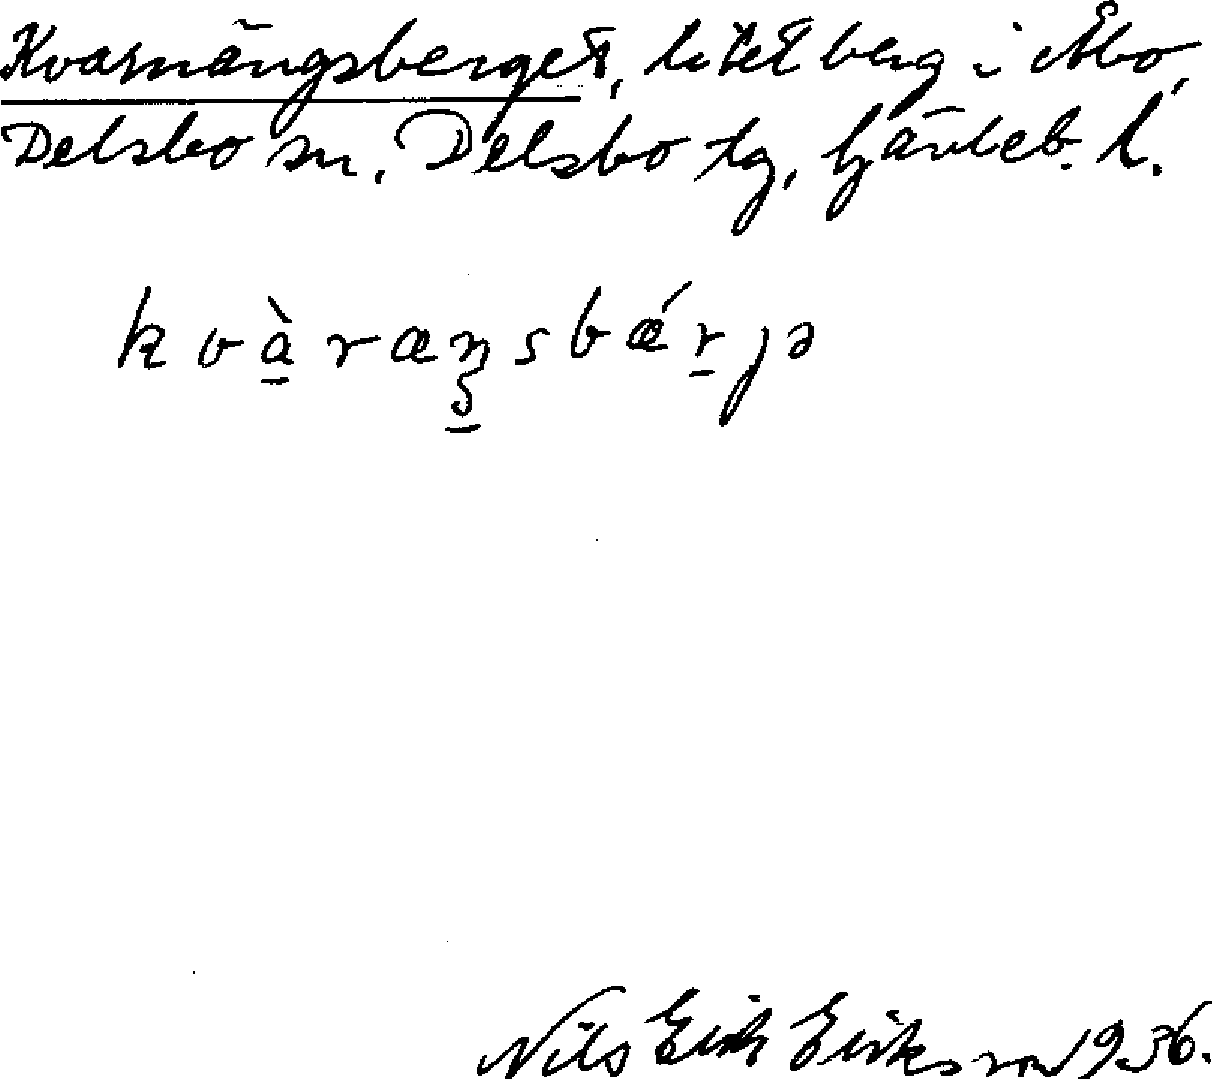 Kvarnängsberget, litet berg i Åbo,
Delsbo sn, Delsbo tg, Gävleb. l.
kvàraŋsbǽrjə
Nils Erik Eriksson 1936.